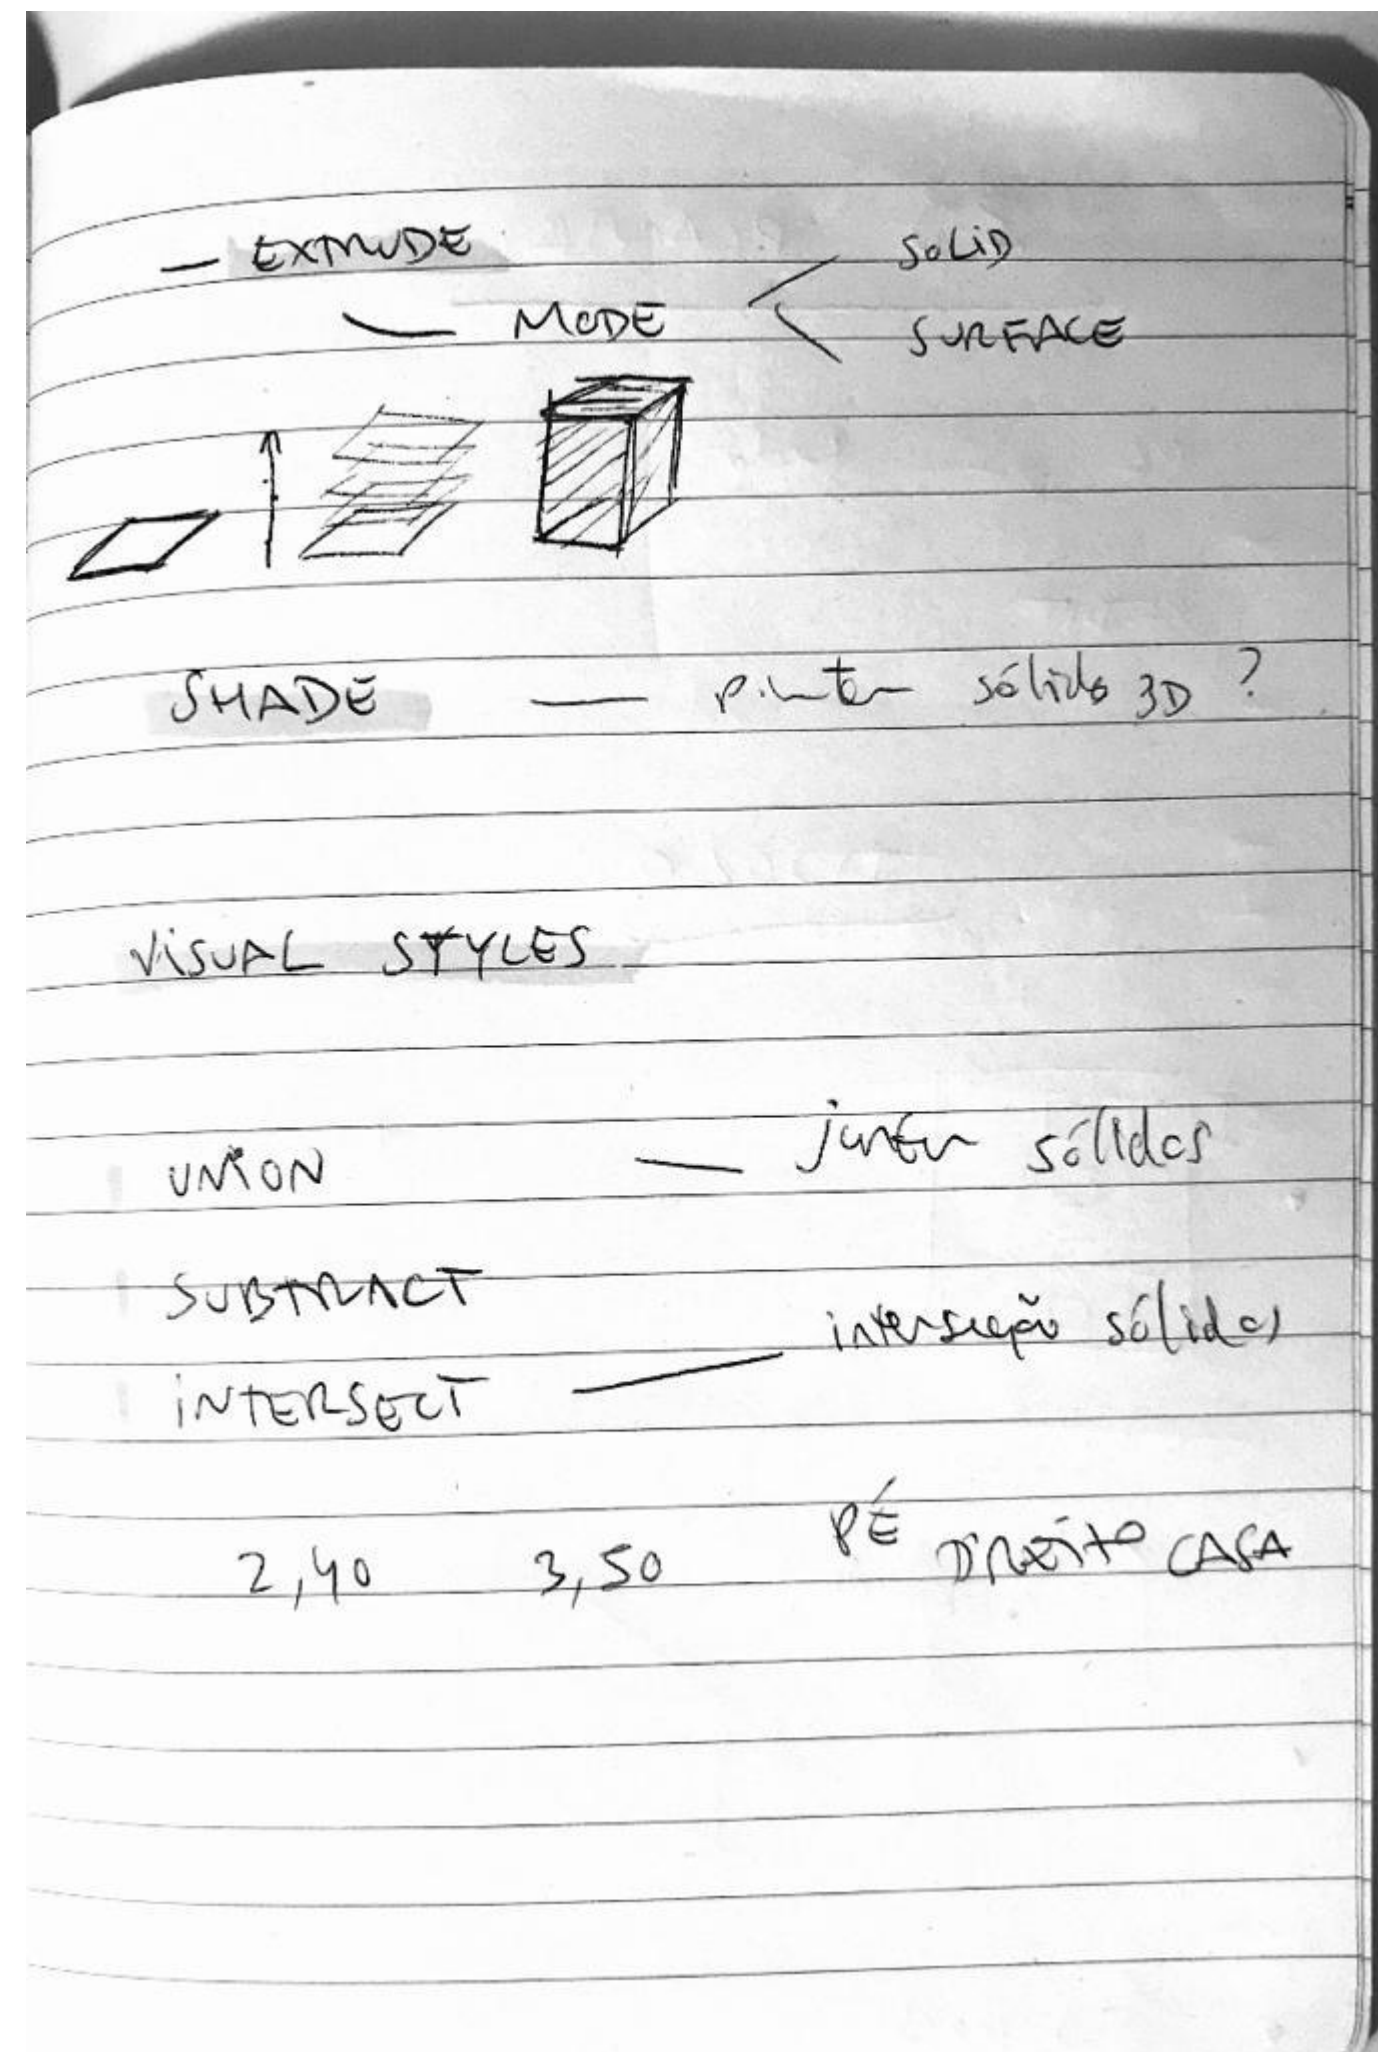 — EXTRUDE
— MODE < SOLID
SURFACE
SHADE — pintar sólido 3D ?
VISUAL STYLES
UNION — juntar sólidos
SUBTRACT
INTERSECT — interseção sólidos
2,40 3,50 PÉ DIREITO CASA